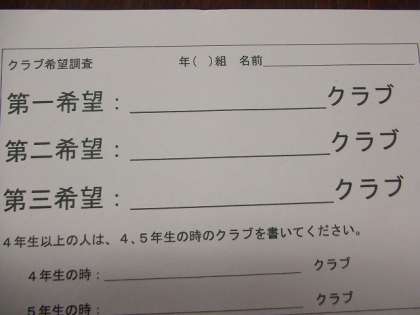 クラブ希望調査 年( )組 名前
第一希望：クラブ
第二希望：クラブ
第三希望：クラブ
４年生以上の人は、４、５年生の時のクラブを書いてください。
４年生の時：クラブ
５年生の時：クラブ